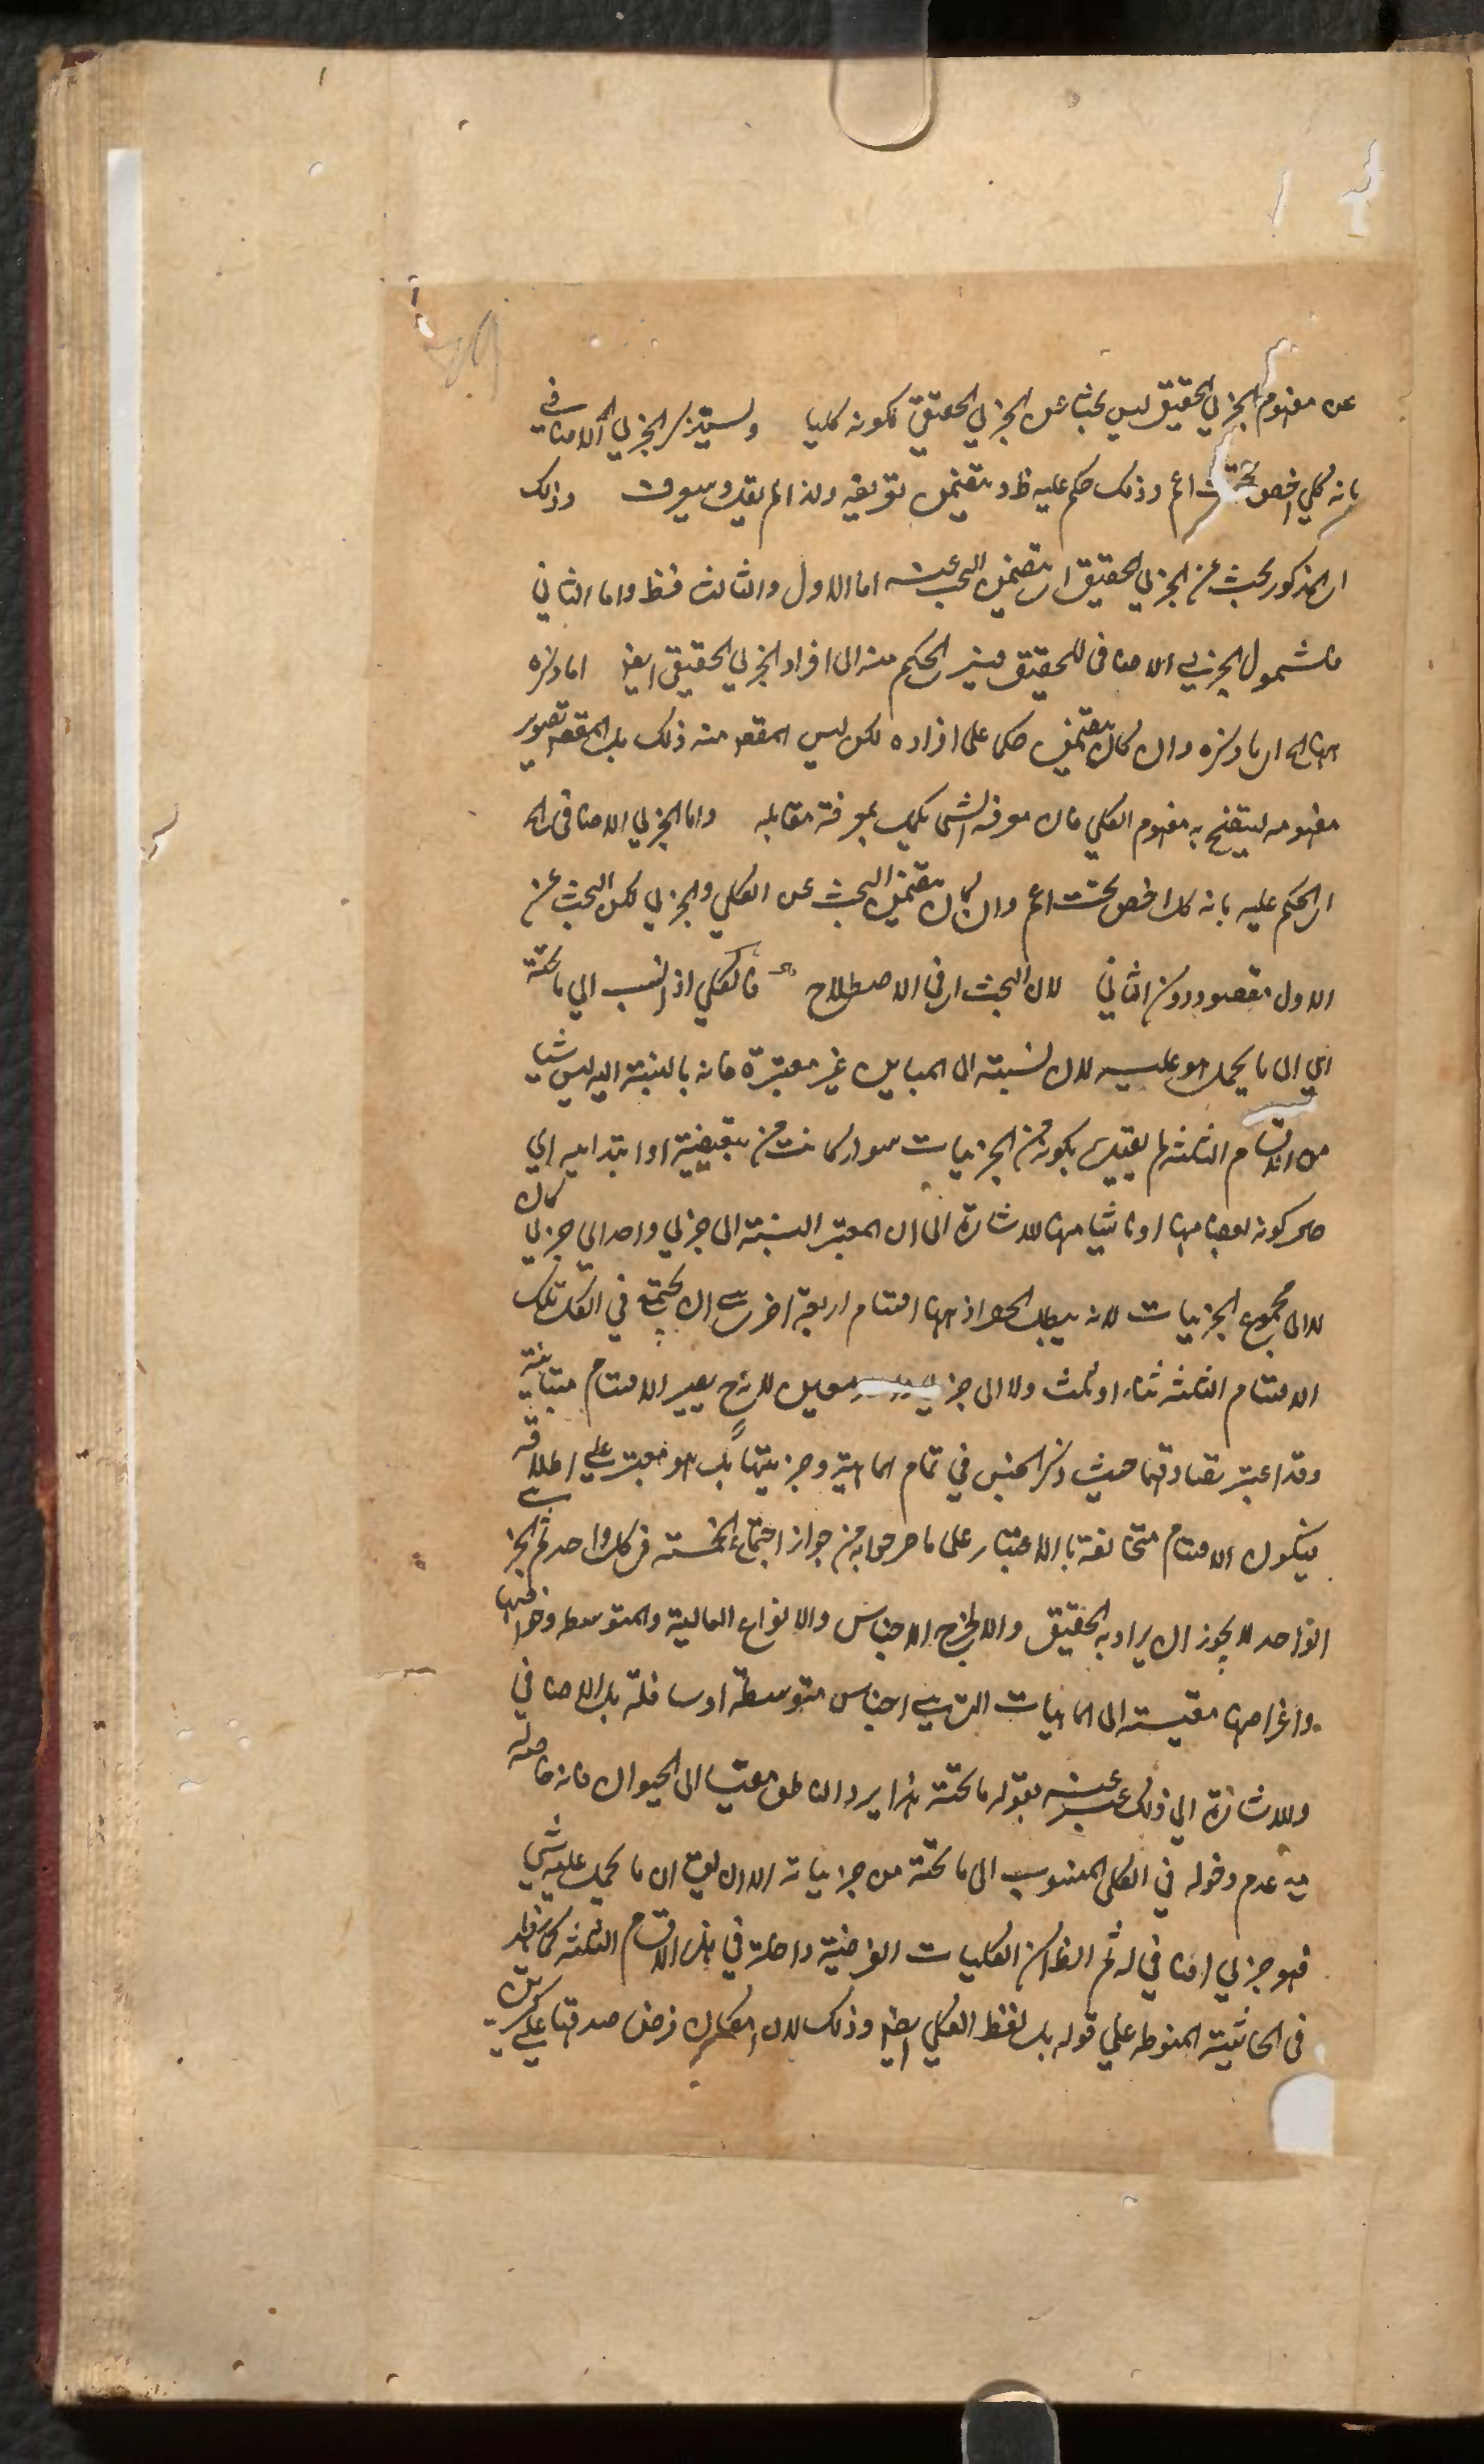 عن مفهوم الجزئي الحقيقي ليس بحثا عن الجزئي الحقيقي لكونه كليا وسيذكر الجزئي الاضافي
بانه كلي اخص تحت اعم وذلك حكم عليه ويتضمن تعريفه ولذا لم يقل وسيعرف وذلك
ان المذكور بحث عن الجزئي الحقيقي او يتضمن البحث عنه اما الاول والثالث فظ واما الثاني
فلشمول الجزئي الاضافي للحقيقي فيتعدى الحكم منه الى افراد الجزئي الحقيقي ايض اما ذكره
ههنا اه اي ما ذكره وان كان يتضمن حكما على افراده لكن ليس المقصد منه ذلك بل المقصد تصوير
مفهومه ليتضح به مفهوم الكلي فان معرفة الشي يكمل بمعرفة مقابله واما الجزئي الاضافي اه
اي الحكم عليه بانه كل اخص تحت اعم وان كان يتضمن البحث عن الكلي والجزئي لكن البحث عن
الاول مقصود دون الثاني لان البحث اي في الاصطلاح فالكلي اذا نسب الي ما تحته
اي الى ما يحمل هو عليه لان نسبته الى المباين غير معتبرة فانه بالنسبة اليه ليس شيا
من الاقسام الثلثة لم يقيده بكونه من الجزئيات سواء كانت من تبعيضية او ابتدائيه اي
حال كونه بعضا منها او ناشيا منها للاشارة الى ان المعتبر النسبة الى جزئي واحد اي جزئي كان
لا الى مجموع الجزئيات لانه يبطل الحصر اذ ههنا اقسام اربعة اخرى هي ان يجتمع في الكل تلك
الاقسام الثلثة ثناء او ثلث ولا الى جزئي معين لانه ح يصير الاقسام متباينة
وقد اعتبر تصادقها حيث ذكر الجنس في تمام الماهية وجزئيتها بل هو معتبر علي اطلاقه
فيكون الاقسام متخالفة بالاعتبار على ما صرحوا به من جواز اجتماع الخمسة في كل واحد ثم الجزئي
الواحد لا يجوز ان يراد به الحقيقي والا لخرج الاجناس والانواع العالية والمتوسطه وخواصها
واعراضها مقيسة الى الماهيات التي هي اجناس متوسطة او سافلة بل الاضافي
وللاشارة الي ذلك عبر عنه بقوله ما تحته فلا يرد الناطق مقيسا الى الحيوان فانه خاصة
مع عدم دخوله في الكلي المنسوب الى ما تحته من جزئياته الا ان يق ان ما يحمل عليه شي
فهو جزئي اضافي له ثم الظ ان الكليات الفرضية داخلة في هذه الاقسام الثلثة كما يفيد
في الحاشية المنوطه علي قوله بل لفظ الكلي ايض وذلك لان امكان فرض صدقها علي كثيرين